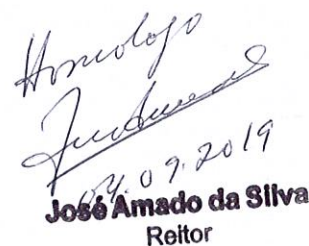 Homologo
04.09.2019
José Amado da Silva
Reitor